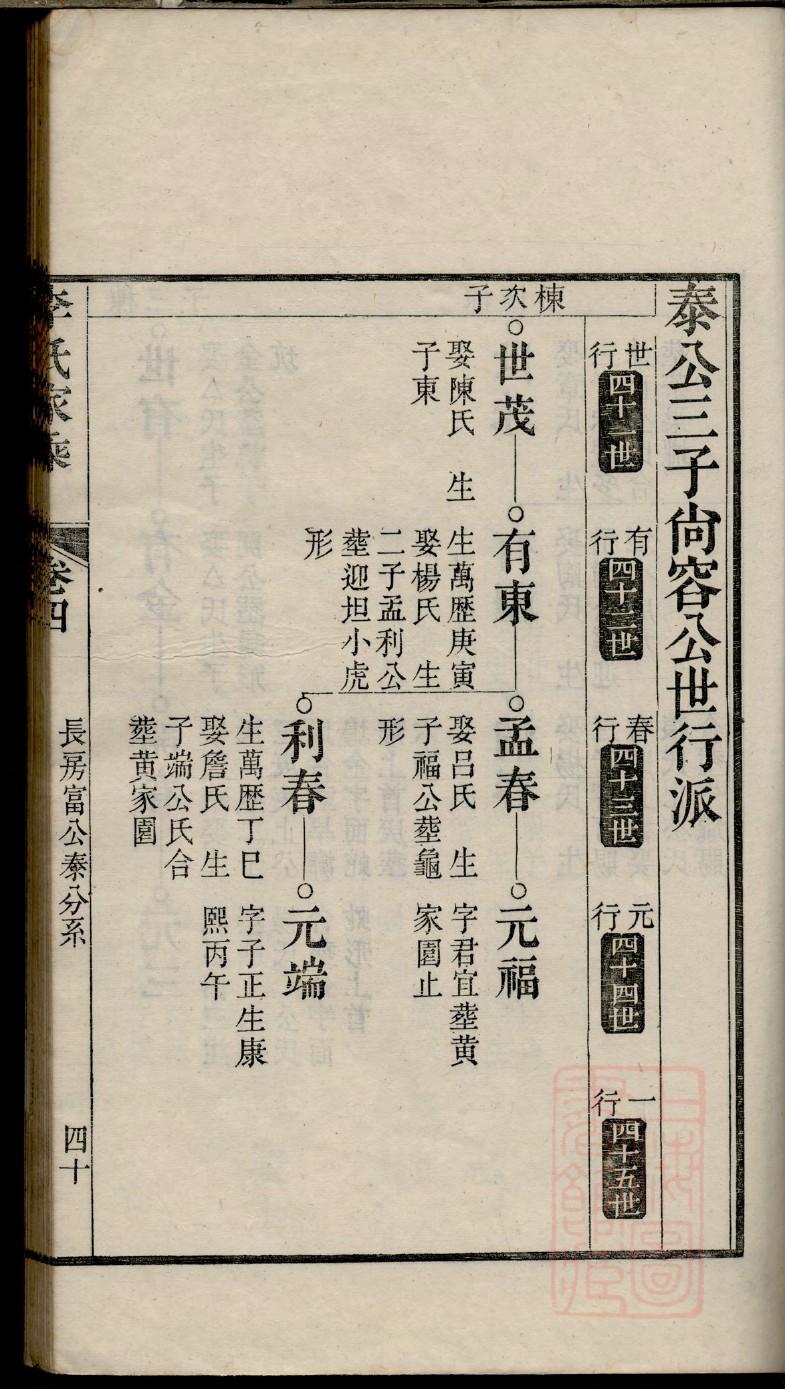 泰公三子尙容公世行派
世行
四十一世
有行
四十二世
春行
四十三世
元行
四十四世
一行
四十五世
棟次子
世茂
娶陳氏　生
子東
有東
生萬歷庚寅
娶楊氏　生
二子孟利公
塟迎坦小虎
形
孟春
娶呂氏　生
子福公塟龜
形
元福
字君宜塟黄
家園止
利春
生萬歷丁巳
娶詹氏　生
子端公氏合
塟黄家園
元端
字子正生康
熙丙午
李氏家乘
卷四
長房富公泰分系
四十